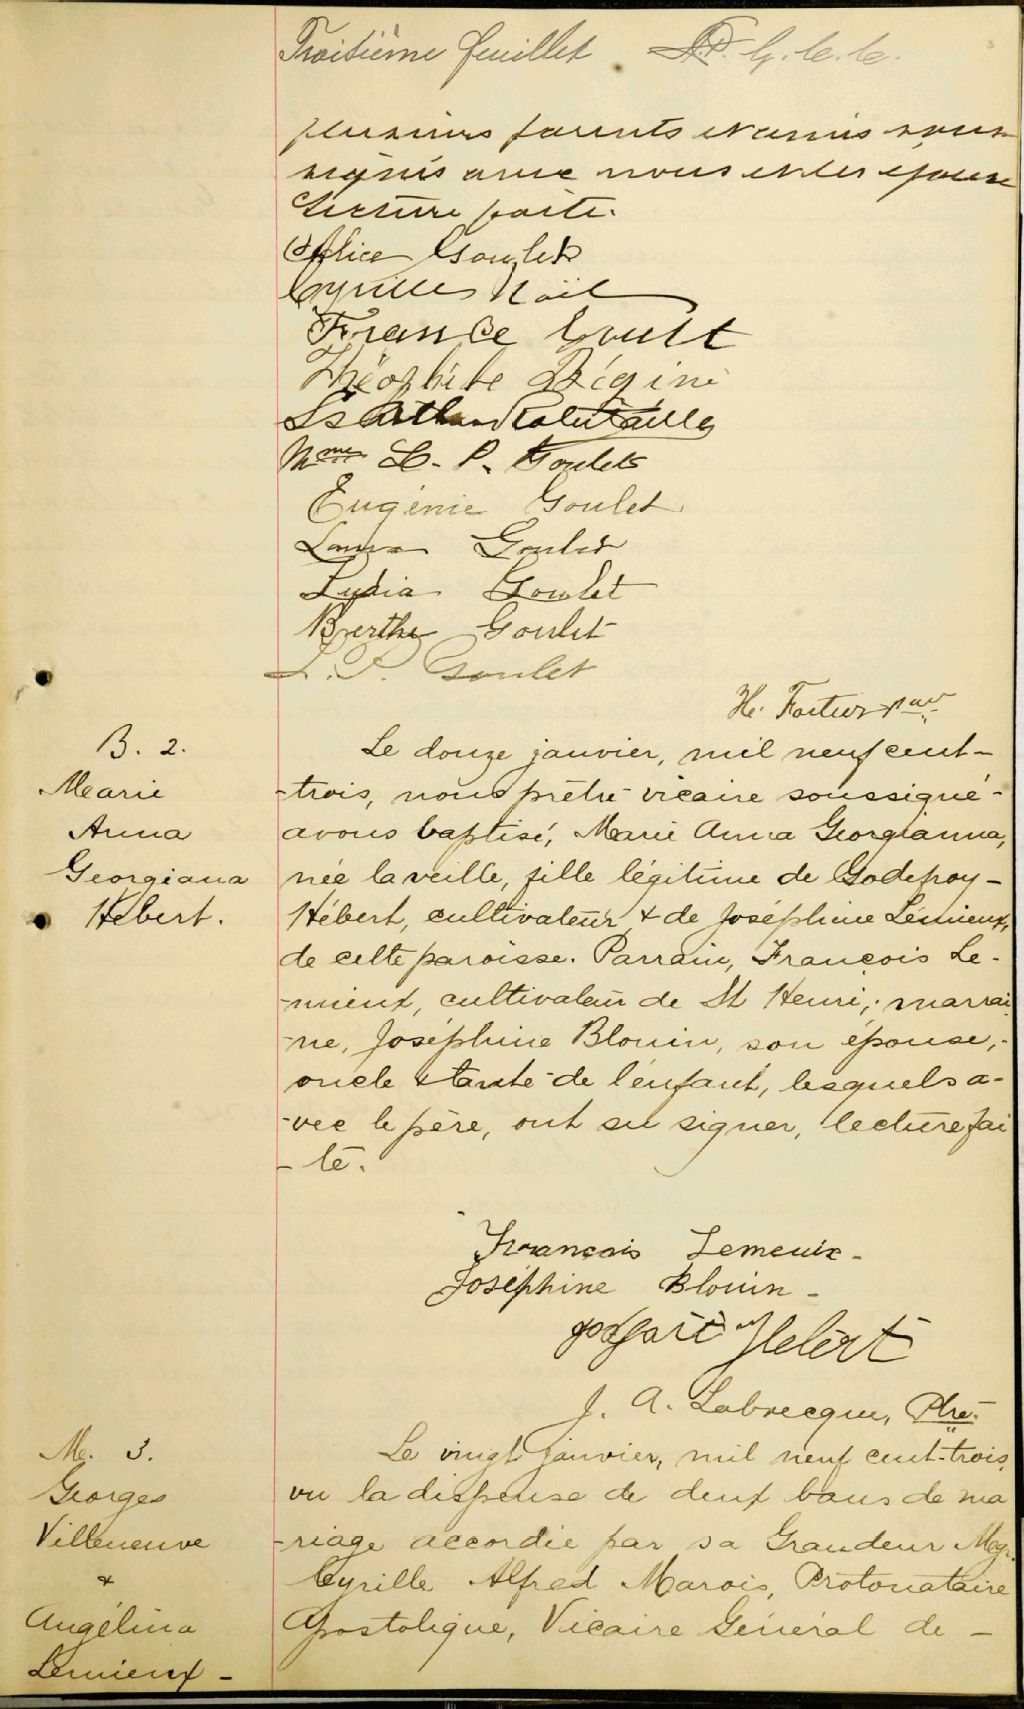 Troisième feuillet G. C. C.
plusieurs parents et amis sous-
signés avec nous et les époux
Lecture faite.
Alice Goulet
Cyrille Noël
France
Théophile Bégin
Ls Arthur Robitaille
Mme L. P. Goulet
Eugénie Goulet
Laura Goulet
Lydia Goulet
Berthe Goulet
L. P. Goulet
H. Fortier
B. 2.
Marie
Anna
Georgiana
Hébert.
Le douze janvier, mil neuf cent-
-trois, nous prêtre vicaire soussigné-
avons baptisé, Marie Anna Georgianna,
née la veille, fille légitime de Godefroy-
Hébert, cultivateur, & de Joséphine Lémieux,
de cette paroisse. Parrain, François Le-
-mieux, cultivateur de St Henri; marrai
-ne, Joséphine Blouin, son épouse,
oncle & tante de l'enfant, lesquels a-
-vec le père, ont su signer, lecture fai
-te.
François Lemeuix-
Joséphine Blouin-
Hebert
J. A. Labrecque, Ptre-
M. 3.
Georges
Villeneuve
&
Angélina
Lemieux-
Le vingt janvier, mil neuf cent-trois,
vu la dispense de deux bans de ma
-riage accordée par sa Grandeur Mgr.
Cyrille Alfred Marois, Protonataire
Apostolique, Vicaire Général de -